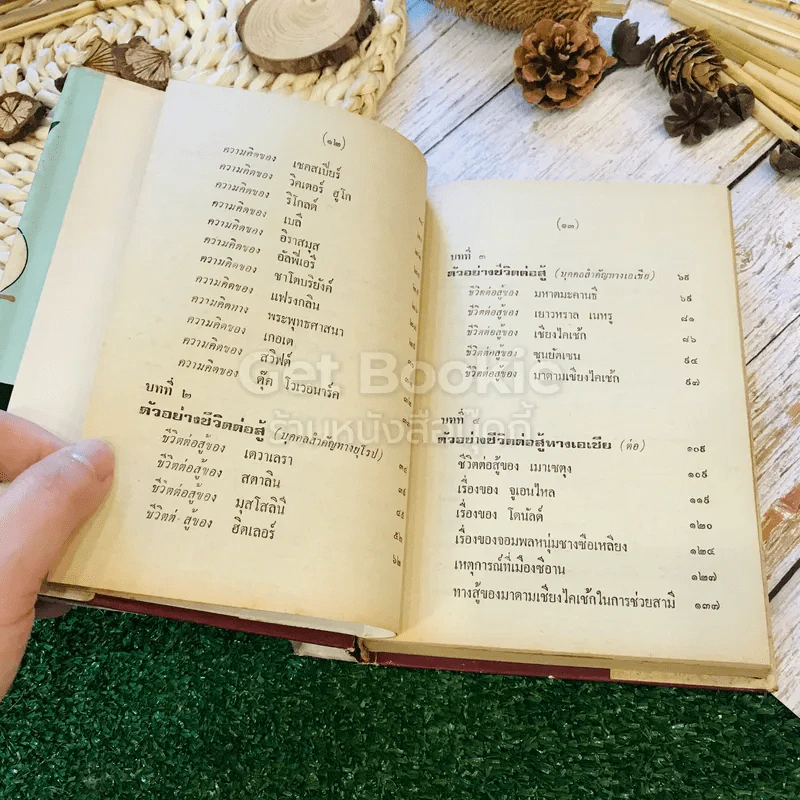 (๑๒)
ความคิดของ เชคสเปียร์
ความคิดของ วิคเตอร์ ฮูโก
ความคิดของ ริโกลด์
ความคิดของ เบลี
ความคิดของ อิราสมุส
ความคิดของ อัลฟิเอรี
ความคิดของ ชาโตบริยังค์
ความคิดของ แฟรงกลิน
ความคิดทาง พระพุทธศาสนา
ความคิดของ เกอเต
ความคิดของ สวิฟต์
ความคิดของ ดุ๊ค โวเวอนาร์ค
บทที่ ๒
ตัวอย่างชีวิตต่อสู้ (บุคคลสำคัญทางยุโรป)
ชีวิตต่อสู้ของ เดวาเลรา
ชีวิตต่อสู้ของ สตาลิน
ชีวิตต่อสู้ของ มุสโสลินี ๔๕
ชีวิตต่อสู้ของ ฮิตเลอร์ ๕๒
๖๒
(๑๓)
บทที่ ๓
ตัวอย่างชีวิตต่อสู้ (บุคคลสำคัญทางเอเชีย) ๖๙
ชีวิตต่อสู้ของ มหาตมะคานธี ๖๙
ชีวิตต่อสู้ของ เยาวหราล เนหรู ๘๑
ชีวิตต่อสู้ของ เชียงไคเช้ก ๘๖
ชีวิตต่อสู้ของ ซุนยัตเซน ๙๔
ชีวิตต่อสู้ของ มาดามเชียงไคเช้ก ๙๗
บทที่ ๔
ตัวอย่างชีวิตต่อสู้ทางเอเชีย (ต่อ) ๑๐๙
ชีวิตต่อสู้ของ เมาเซตุง ๑๐๙
เรื่องของ จูเอนไหล ๑๑๙
เรื่องของ โดนัลด์ ๑๒๐
เรื่องของจอมพลหนุ่มชางซือเหลียง ๑๒๔
เหตุการณ์ที่เมืองซีอาน ๑๒๗
ทางสู้ของมาดามเชียงไคเช้กในการช่วยสามี ๑๓๗
Get Bookie
ร้านหนังสือกู๊ดดี้